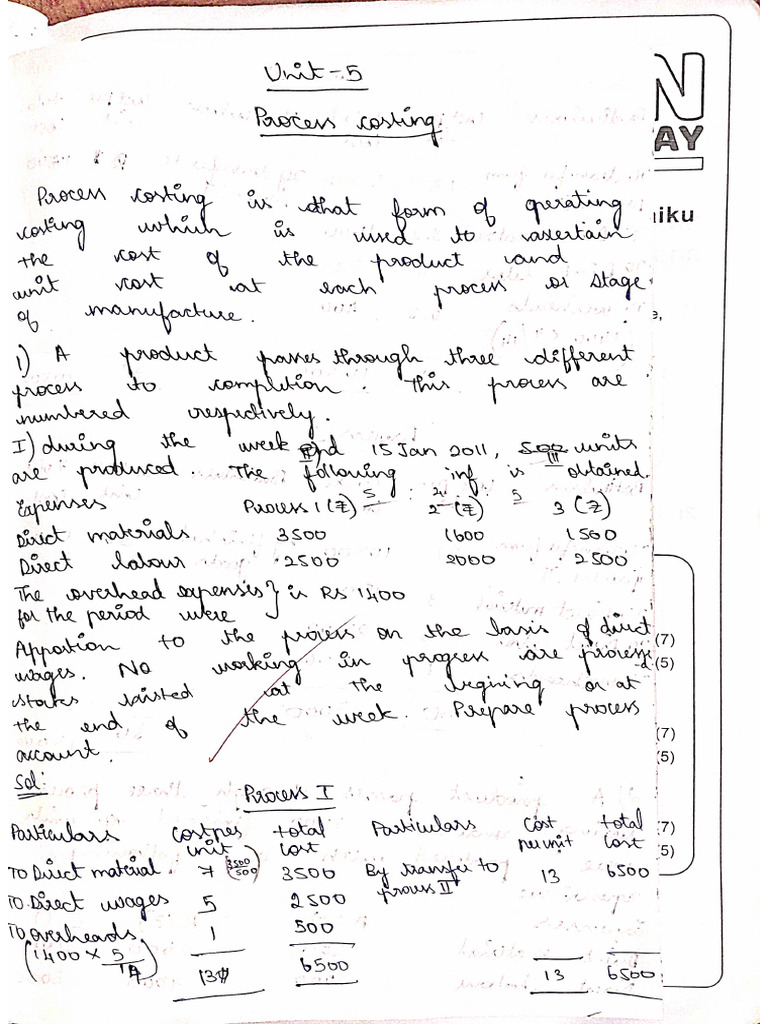 Unit-5
Process costing.
N
AY
iku
Process costing is that form of operating
costing which is used to assertain
the cost of the product and
unit cost at each process or stage
of manufacture.
e,
1) A product passes through three different
process to complition. This process are
numbered respectively.
I) during the week end 15 Jan 2011, 500 units
are produced. The following inf is obtained.
Expenses Process 1 (₹) 5 2 (₹) 5 3 (₹)
Direct materials 3500 1600 1500
Direct labour 2500 2000 2500
The overhead expenses } is Rs 1400
for the period were
Apportion to the process on the basis of direct
wages. No working in progress are process
stocks existed at the begining or at
the end of the week. Prepare process
account.
(7)
(5)
(7)
(5)
Sol:
Process I
Particulars Cost per unit total cost Particulars Cost per unit total cost
(7)
(5)
To Direct material. 7 (3500/500) 3500 By transfer to process II 13 6500
To Direct wages 5 2500
To overheads 1 500
(1400 × 5/14) 13 6500 13 6500